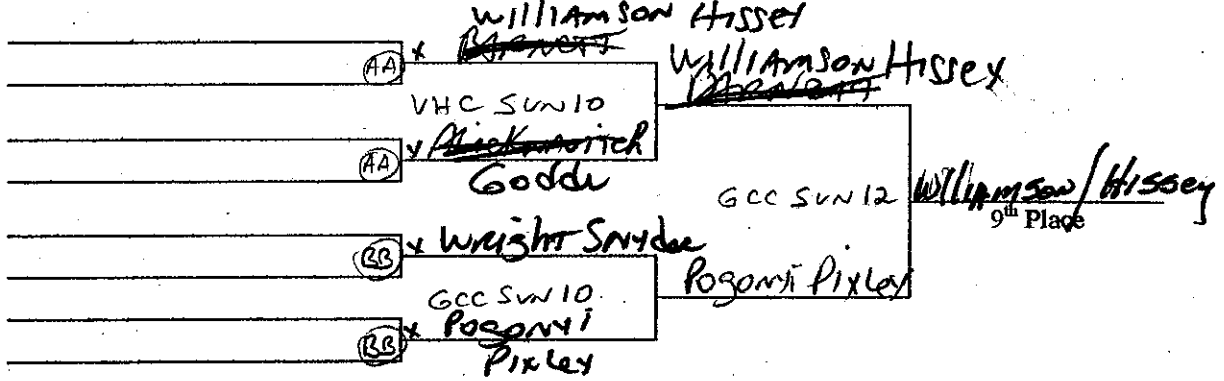 Williamson Hissey
AA
Williamson Hissey
VHC SUN 10
AA
Goddu
GCC SUN 12
Williamson/Hissey
9th Place
BB
Wright Snyder
Pogonyi Pixley
GCC SUN 10
BB
Pogonyi
Pixley